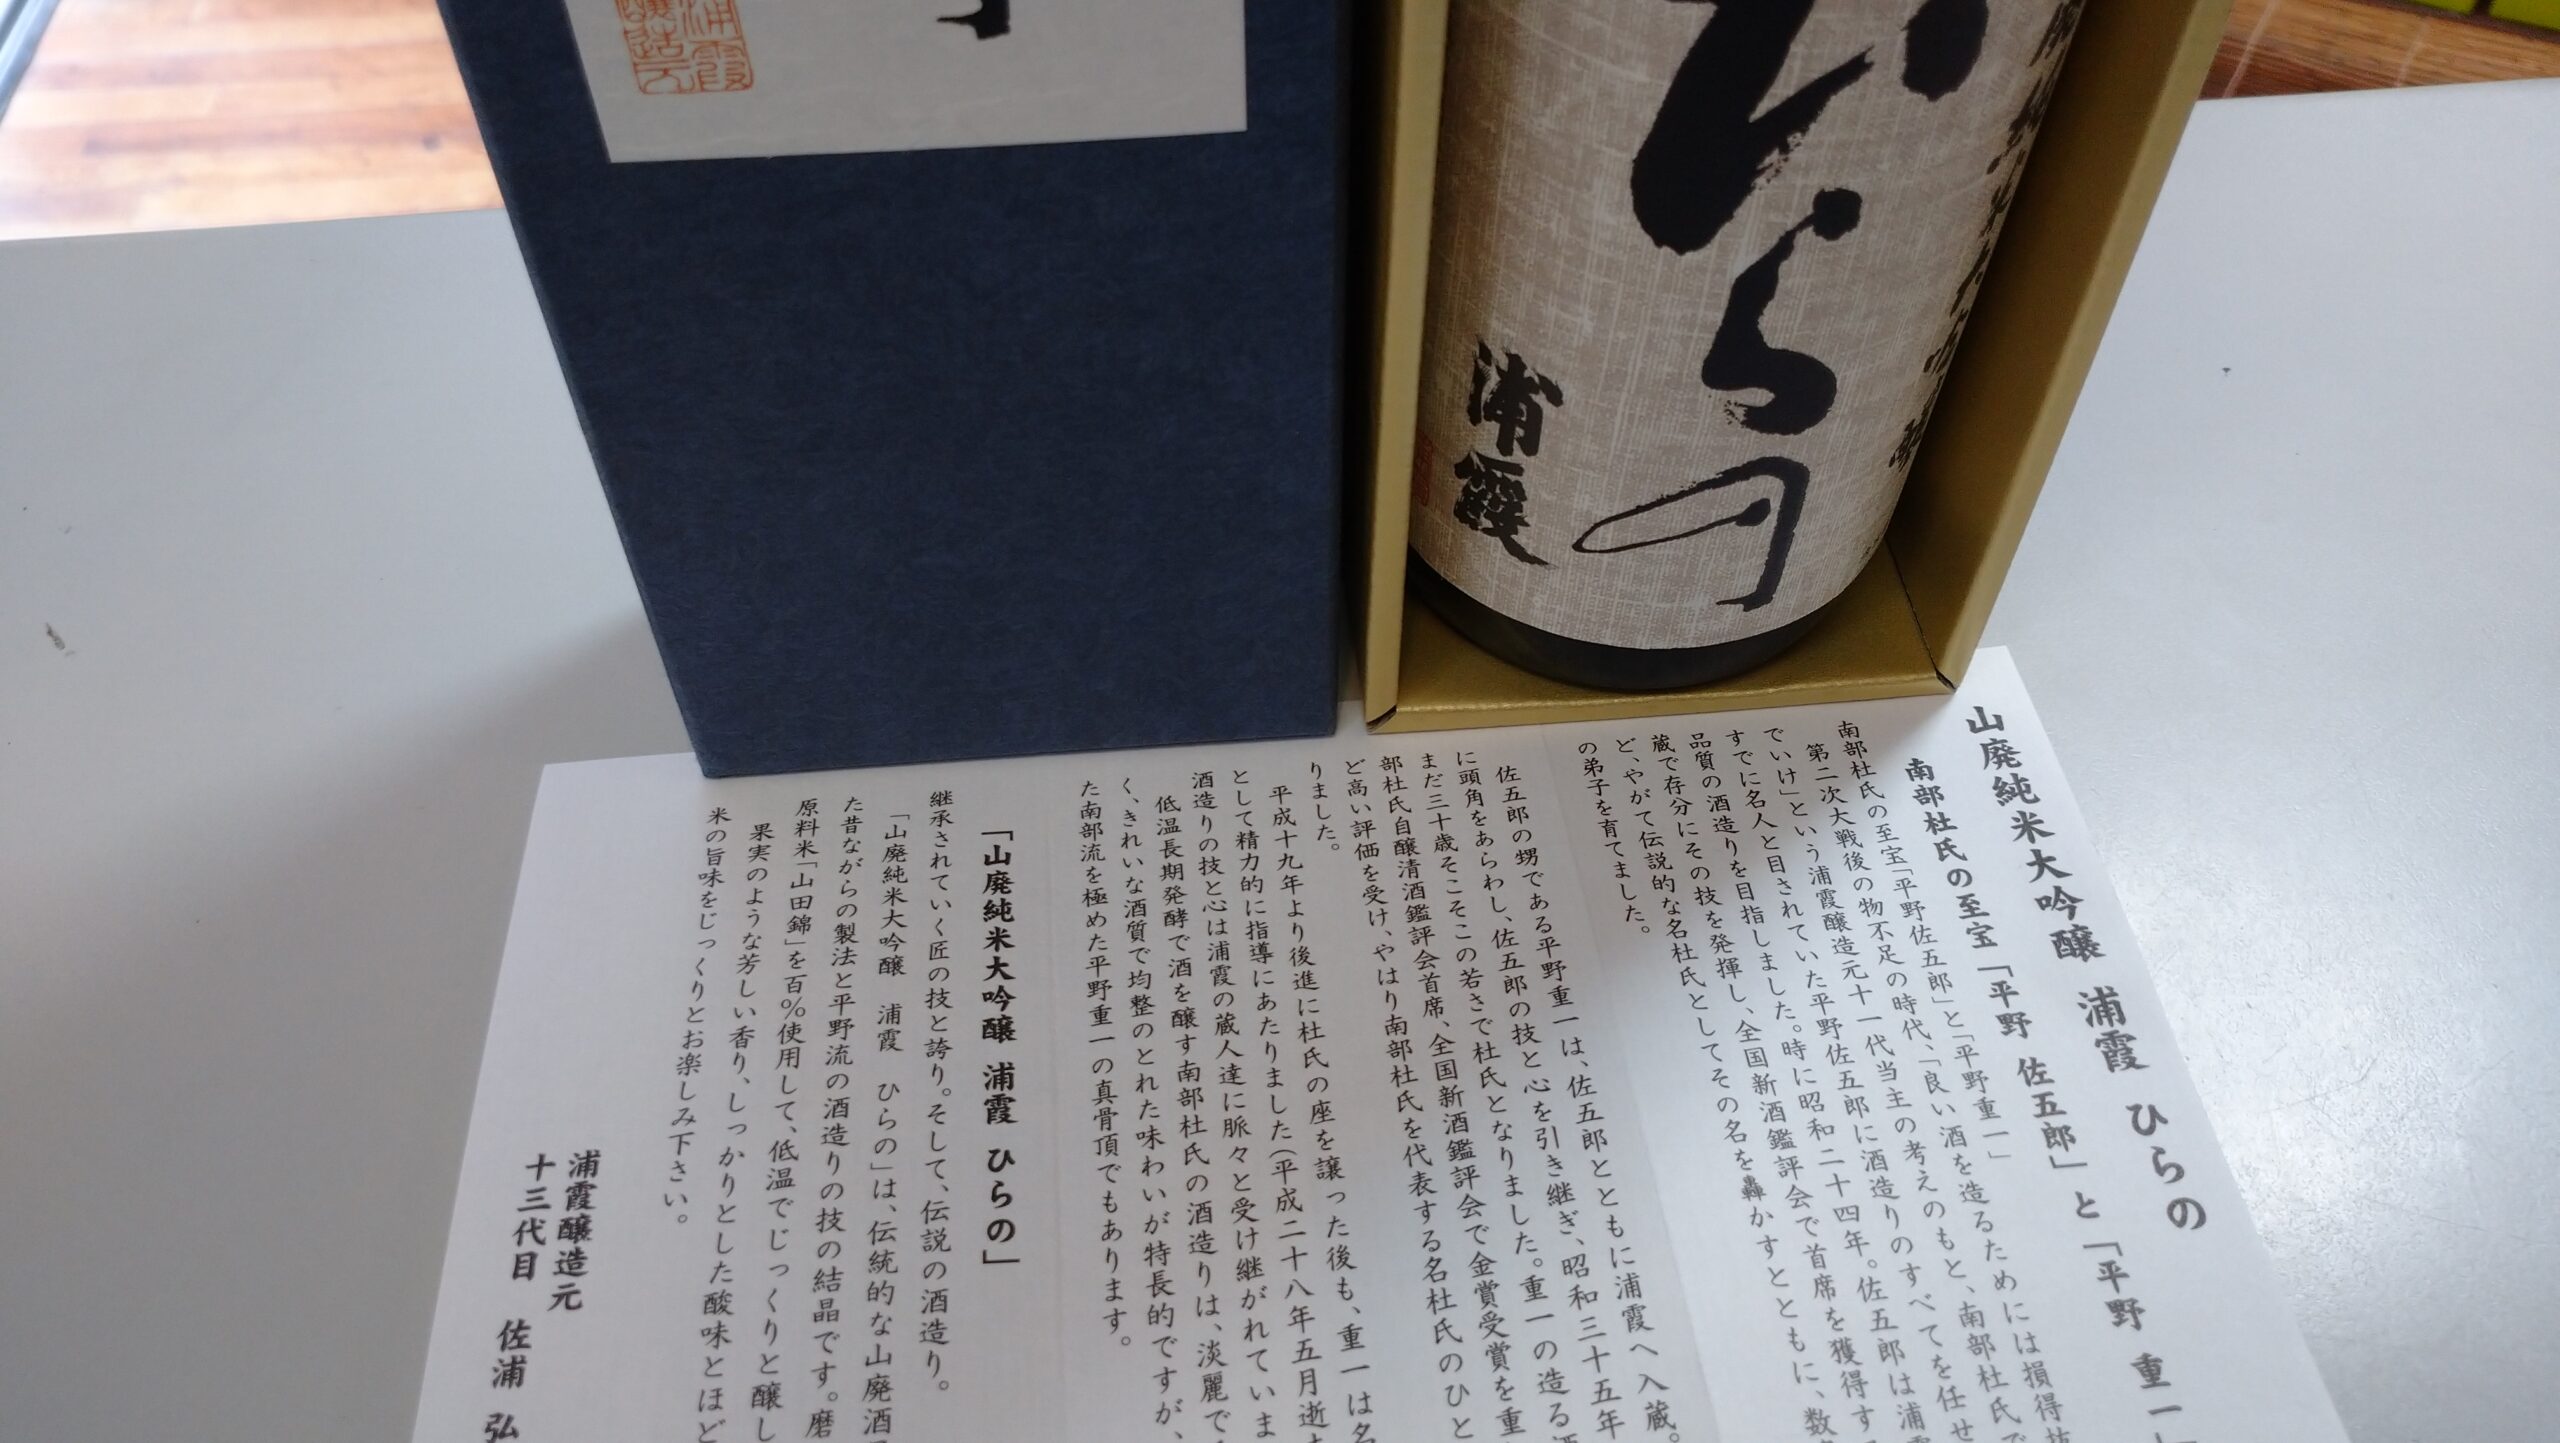 浦霞
醸造元
ひらの
浦霞
山廃純米大吟醸 浦霞 ひらの
南部杜氏の至宝「平野 佐五郎」と「平野 重一
南部杜氏の至宝「平野佐五郎」と「平野重一」
第二次大戦後の物不足の時代、「良い酒を造るためには損得
でいけ」という浦霞醸造元十一代当主の考えのもと、南部杜氏で
すでに名人と目されていた平野佐五郎に酒造りのすべてを任せ
品質の酒造りを目指しました。時に昭和二十四年。佐五郎は浦
蔵で存分にその技を発揮し、全国新酒鑑評会で首席を獲得す
ど、やがて伝説的な名杜氏としてその名を轟かすとともに、数
の弟子を育てました。
佐五郎の甥である平野重一は、佐五郎とともに浦霞へ入蔵。
に頭角をあらわし、佐五郎の技と心を引き継ぎ、昭和三十五年
まだ三十歳そこそこの若さで杜氏となりました。重一の造る
部杜氏自醸清酒鑑評会首席、全国新酒鑑評会で金賞受賞を重
ど高い評価を受け、やはり南部杜氏を代表する名杜氏のひと
りました。
平成十九年より後進に杜氏の座を譲った後も、重一は名
として精力的に指導にあたりました(平成二十八年五月逝
酒造りの技と心は浦霞の蔵人達に脈々と受け継がれていま
低温長期発酵で酒を醸す南部杜氏の酒造りは、淡麗で
く、きれいな酒質で均整のとれた味わいが特長的ですが、
た南部流を極めた平野重一の真骨頂でもあります。
「山廃純米大吟醸 浦霞 ひらの」
継承されていく匠の技と誇り。そして、伝説の酒造り。
「山廃純米大吟醸 浦霞 ひらの」は、伝統的な山廃酒
た昔ながらの製法と平野流の酒造りの技の結晶です。磨
原料米「山田錦」を百%使用して、低温でじっくりと醸し
果実のような芳しい香り、しっかりとした酸味とほど
米の旨味をじっくりとお楽しみ下さい。
浦霞醸造元
十三代目 佐浦 弘